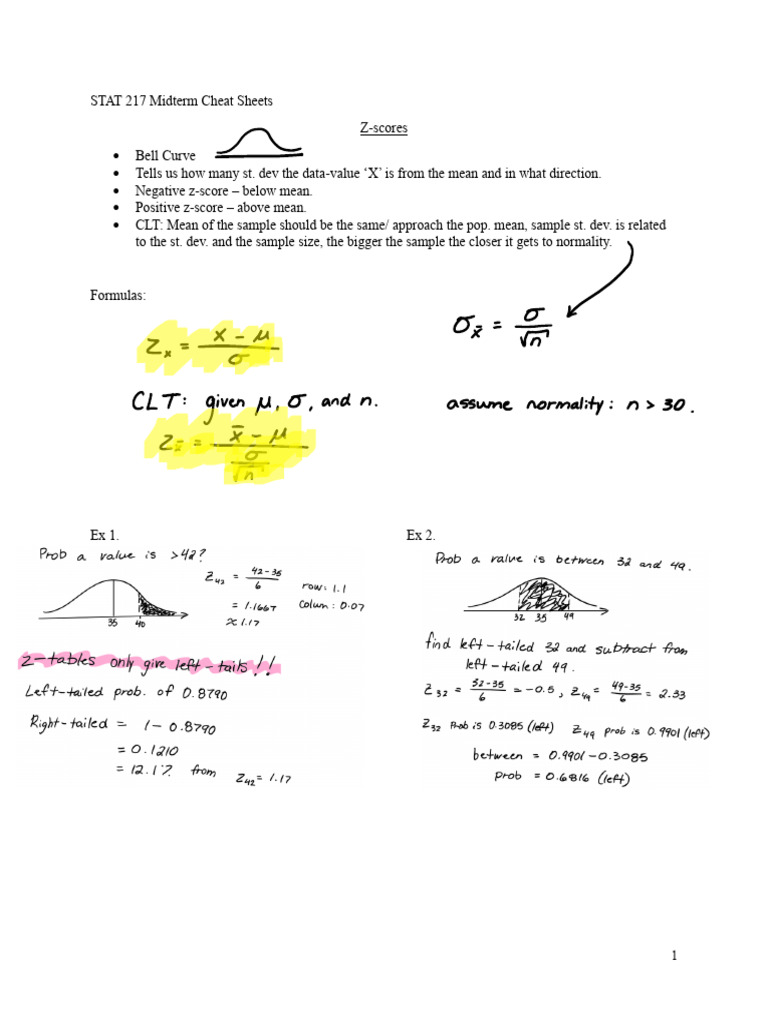 STAT 217 Midterm Cheat Sheets
Z-scores
• Bell Curve
• Tells us how many st. dev the data-value ‘X’ is from the mean and in what direction.
• Negative z-score – below mean.
• Positive z-score – above mean.
• CLT: Mean of the sample should be the same/ approach the pop. mean, sample st. dev. is related
to the st. dev. and the sample size, the bigger the sample the closer it gets to normality.
Formulas:
Zₓ = (x − μ) / σ
σx̄ = σ / √n
CLT: given μ, σ, and n.
assume normality: n > 30.
Zx̄ = (x̄ − μ) / (σ / √n)
Ex 1.
Prob a value is >42?
Z₄₂ = (42−35) / 6
row: 1.1
= 1.1667
Colum: 0.07
≈ 1.17
35 40
Z-tables only give left-tails!!
Left-tailed prob. of 0.8790
Right-tailed = 1 − 0.8790
= 0.1210
= 12.1% from Z₄₂ = 1.17
Ex 2.
Prob a value is between 32 and 49.
32 35 49
find left-tailed 32 and subtract from
left-tailed 49.
Z₃₂ = (32−35) / 6 = −0.5, Z₄₉ = (49−35) / 6 = 2.33
Z₃₂ Prob is 0.3085 (left) Z₄₉ prob is 0.9901 (left)
between = 0.9901 − 0.3085
prob = 0.6816 (left)
1